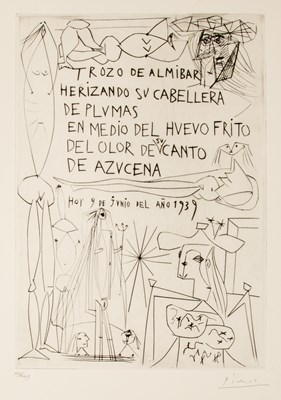 TROZO DE ALMIBAR
HERIZANDO SU CABELLERA
DE PLVMAS
EN MEDIO DEL HVEVO FRITO
DEL OLOR DE SU CANTO
DE AZVCENA
HOY 9 DE JVNIO DEL AÑO 1939
Picasso